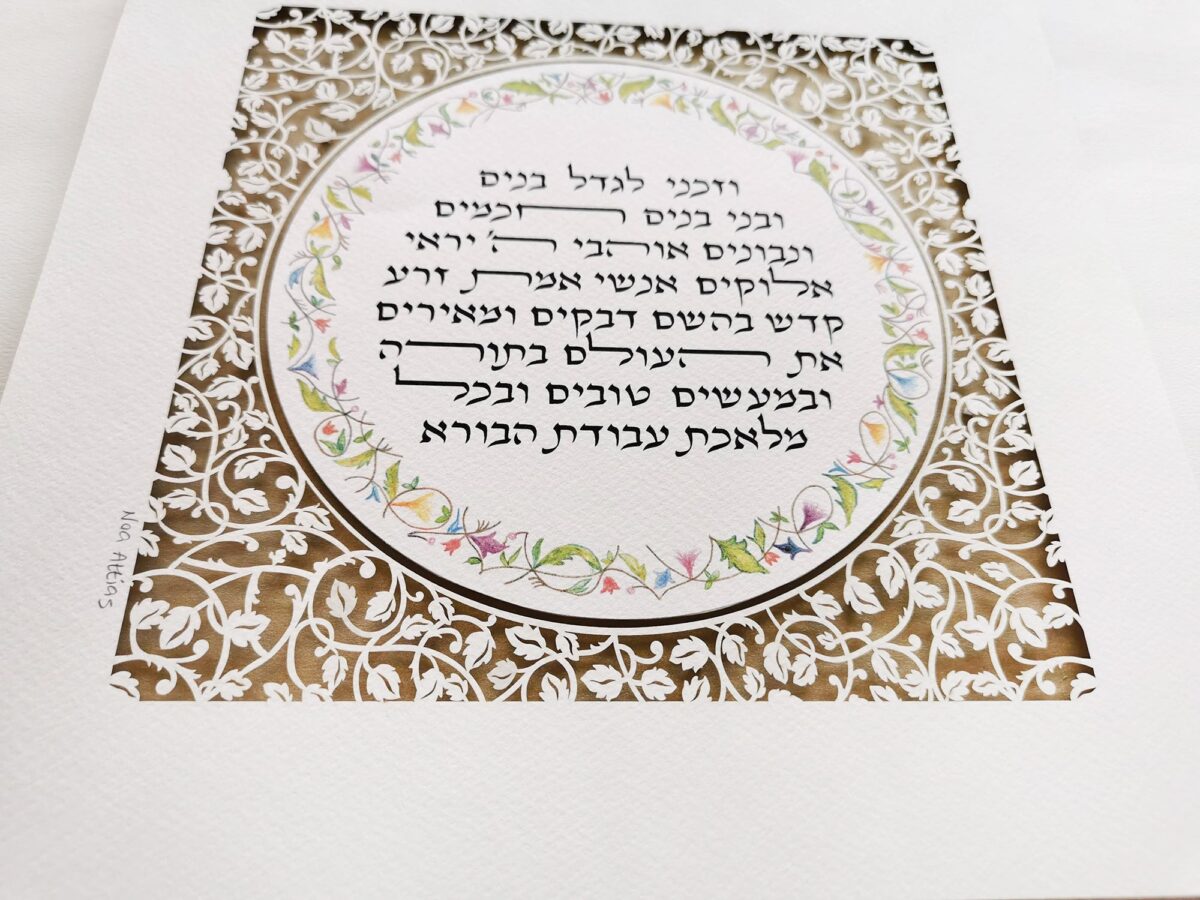 וזכני לגדל בנים
ובני בנים חכמים
ונבונים אוהבי ה' יראי
אלוקים אנשי אמת זרע
קדש בהשם דבקים ומאירים
את העולם בתורה
ובמעשים טובים ובכל
מלאכת עבודת הבורא
Noa Attias